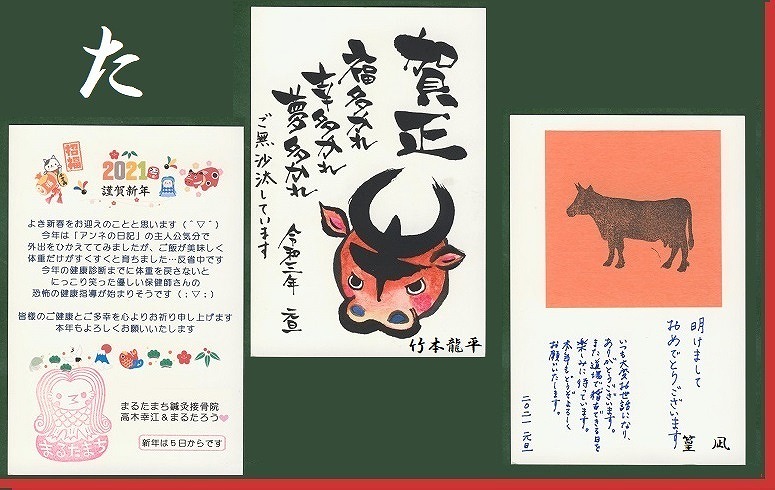 た
招福
2021
謹賀新年
よき新春をお迎えのことと思います（＾▽＾）
今年は「アンネの日記」の主人公気分で
外出をひかえてみましたが、ご飯が美味しく
体重だけがすくすくと育ちました…反省中です
今年の健康診断までに体重を戻さないと
にっこり笑った優しい保健師さんの
恐怖の健康指導が始まりそうです（；▽；）
皆様のご健康とご多幸を心よりお祈り申し上げます
本年もよろしくお願いいたします
まるたまち
まるたまち鍼灸接骨院
高木幸江＆まるたろう
新年は５日からです
賀正
福多かれ
幸多かれ
夢多かれ
ご無沙汰しています
令和三年 元旦
竹本龍平
明けまして
おめでとうございます
いつも大変お世話になり、
ありがとうございます。
また道場で稽古できる日を
楽しみに待っています。
本年もどうぞよろしく
お願いいたします。
二〇二一 元旦
篁 凪